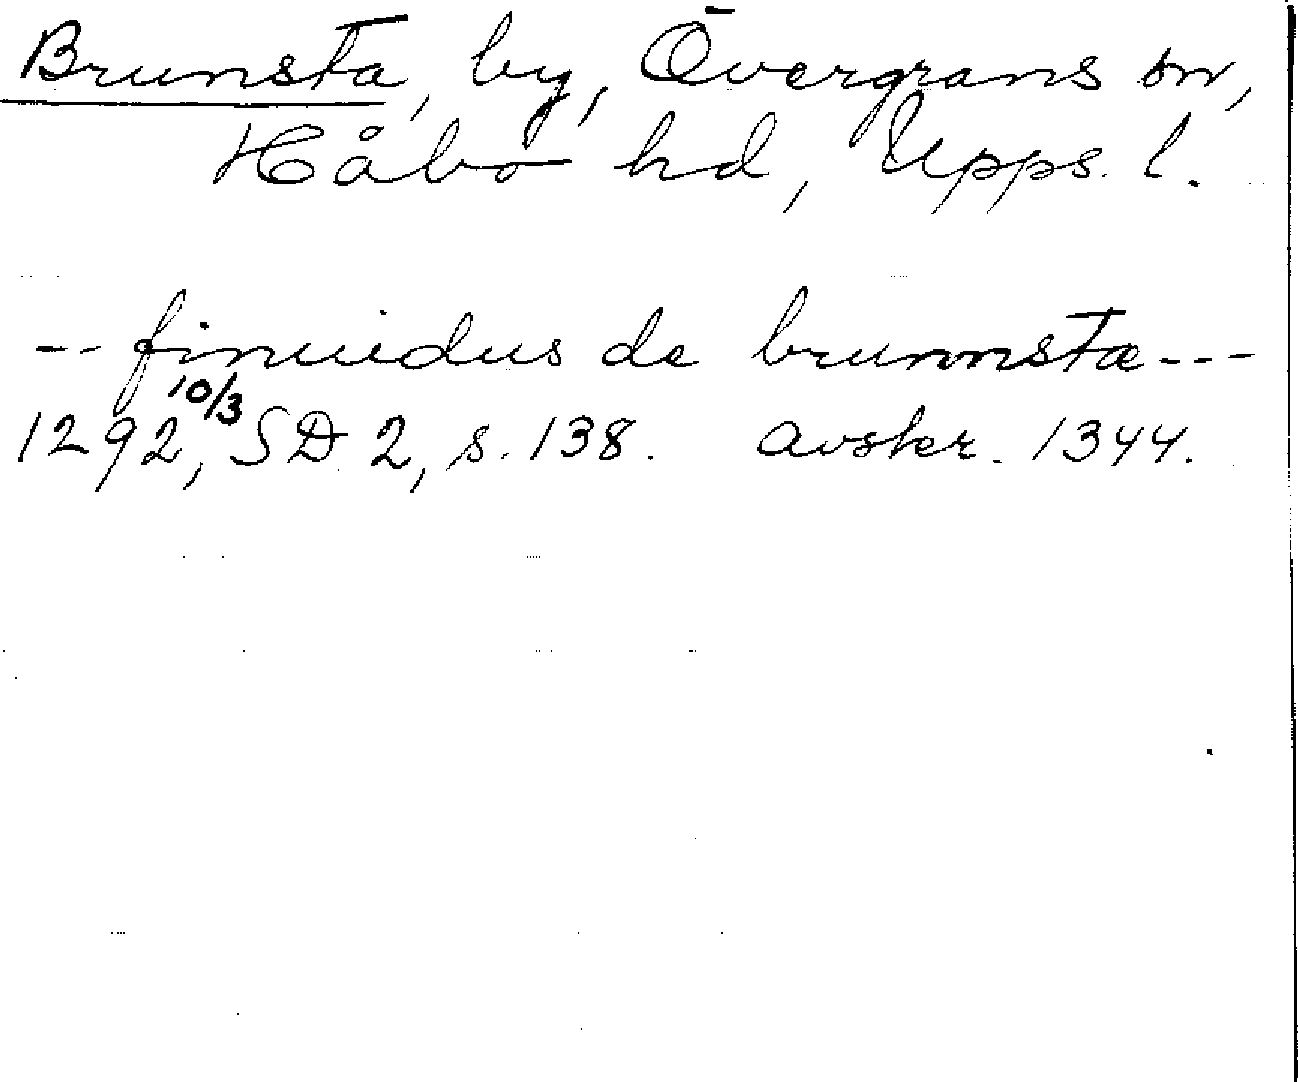 Brunsta, by, Övergrans sn,
Håbo hd, Upps. l.
-- finuidus de brunnstæ ---
1292 10/3, SD 2, s. 138. avskr. 1344.